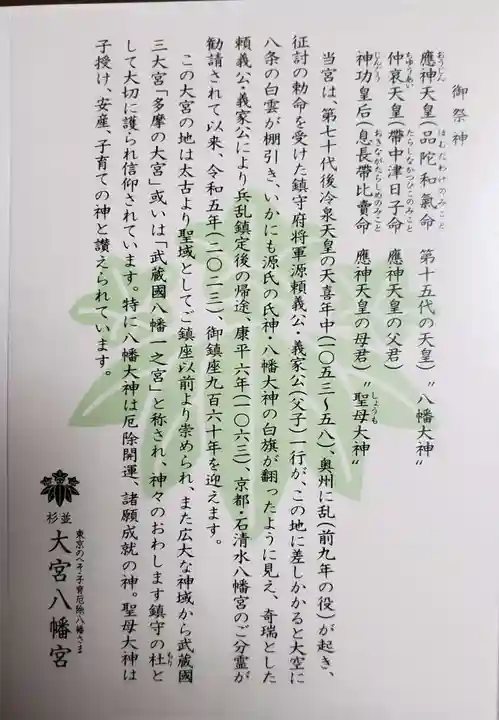 御祭神
應神天皇(品陀和氣命 第十五代の天皇)〝八幡大神〟
おうじん ほむだわけのみこと
仲哀天皇(帶中津日子命 應神天皇の父君)
ちゅうあい たらしなかつひこのみこと
神功皇后(息長帶比賣命 應神天皇の母君)〝聖母大神〟
じんぐう おきながたらしひめのみこと しょうも
当宮は、第七十代後冷泉天皇の天喜年中(一〇五三〜五八)、奥州に乱(前九年の役)が起き、
征討の勅命を受けた鎮守府将軍源頼義公・義家公(父子)一行が、この地に差しかかると大空に
八条の白雲が棚引き、いかにも源氏の氏神・八幡大神の白旗が翻ったように見え、奇瑞とした
頼義公・義家公により兵乱鎮定後の帰途、康平六年(一〇六三)、京都・石清水八幡宮のご分霊が
勧請されて以来、令和五年(二〇二三)、御鎮座九百六十年を迎えます。
この大宮の地は太古より聖域としてご鎮座以前より崇められ、また広大な神域から武蔵國
三大宮「多摩の大宮」或いは「武蔵國八幡一之宮」と称され、神々のおわします鎮守の杜と
もり
して大切に護られ信仰されています。特に八幡大神は厄除開運、諸願成就の神。聖母大神は
子授け、安産、子育ての神と讃えられています。
東京のへそ・子育厄除八幡さま
杉並 大宮八幡宮